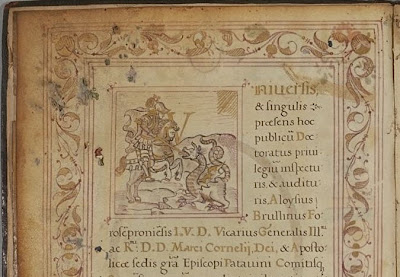 niuersis,
& singulis
præsens hoc
publicū Doc
toratus priui
legiū inspectu
ris & auditu
ris, Aloysius
Brullinus Fo
roseproniẽsis I.V.D. Vicarius Generalis Illᵐⁱ
ac Rᵐⁱ D.D. Marci Cornelij, Dei, & Aposto
licæ sedis grã Episcopi Patauini Comitisq₃